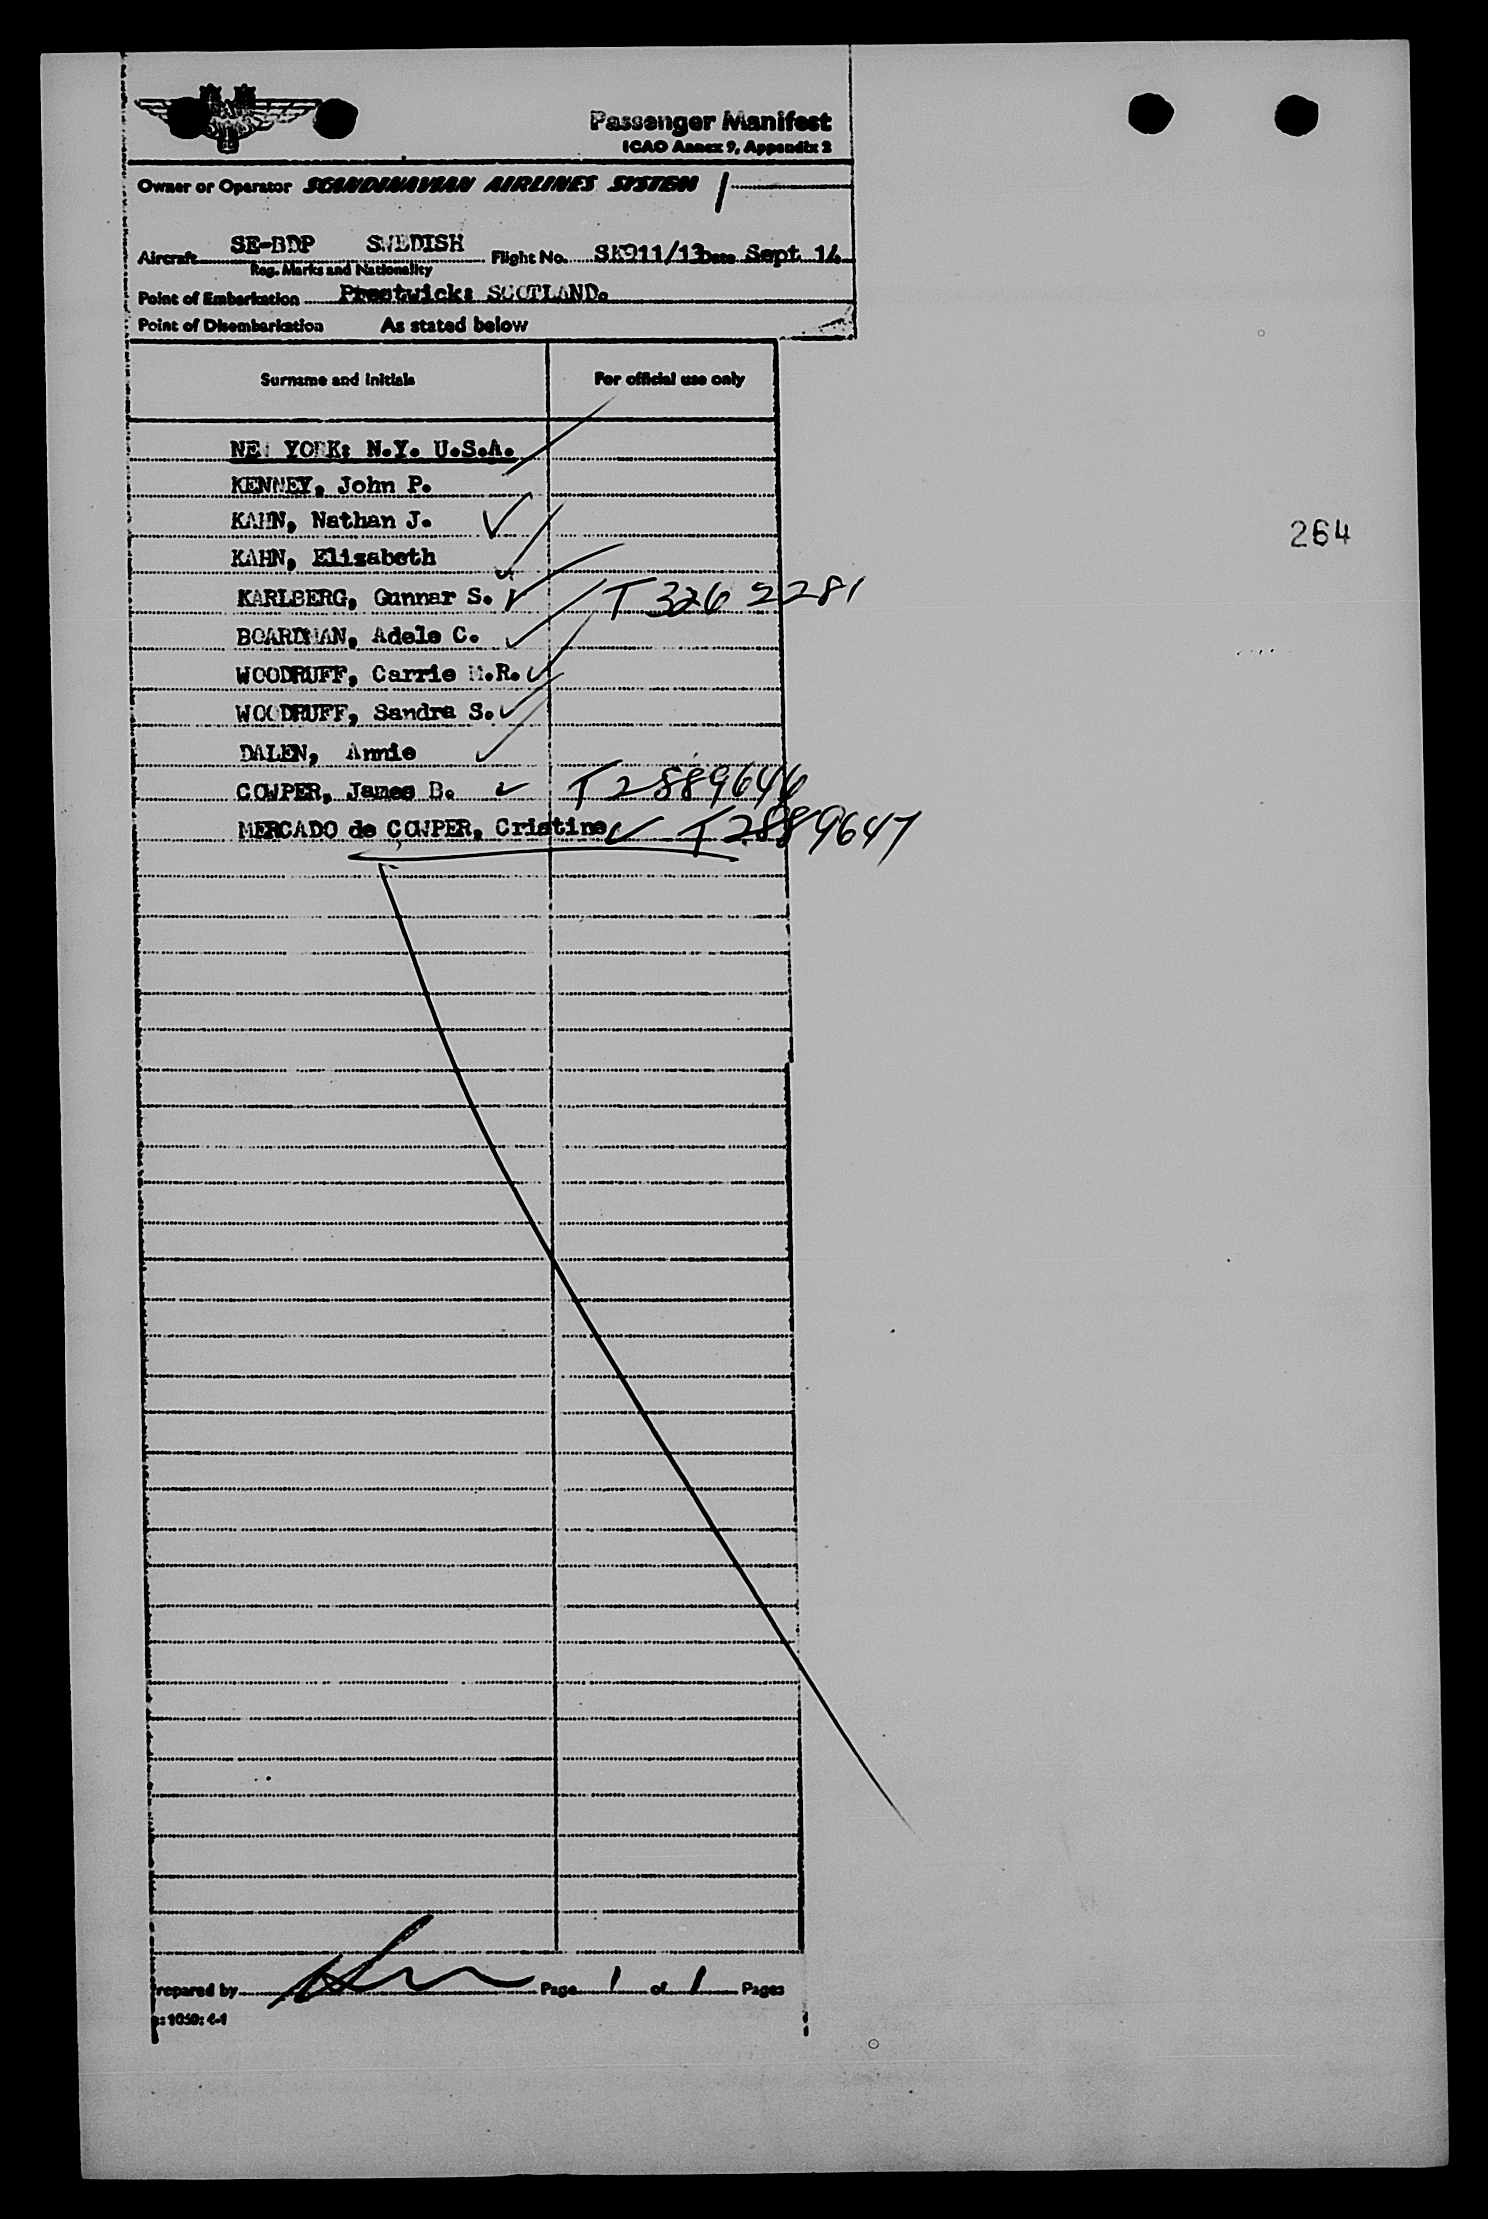 Passenger Manifest
ICAO Annex 9, Appendix 2
Owner or Operator SCANDINAVIAN AIRLINES SYSTEM 1
Aircraft SE-BDP SWEDISH Flight No. SK911/13 Date Sept 14
Reg. Marks and Nationality
Point of Embarkation Prestwick: SCOTLAND.
Point of Disembarkation As stated below
Surname and initials For official use only
NEW YORK: N.Y. U.S.A.
KENNEY, John P.
KAHN, Nathan J.
264
KAHN, Elisabeth
KARLBERG, Gunnar S. T 326 2281
BOARDMAN, Adele C.
WOODRUFF, Carrie M.R.
WOODRUFF, Sandra S.
DALEN, Annie
COWPER, James B. T 2889646
MERCADO de COWPER, Cristine T 2889647
repared by Page 1 of 1 Pages